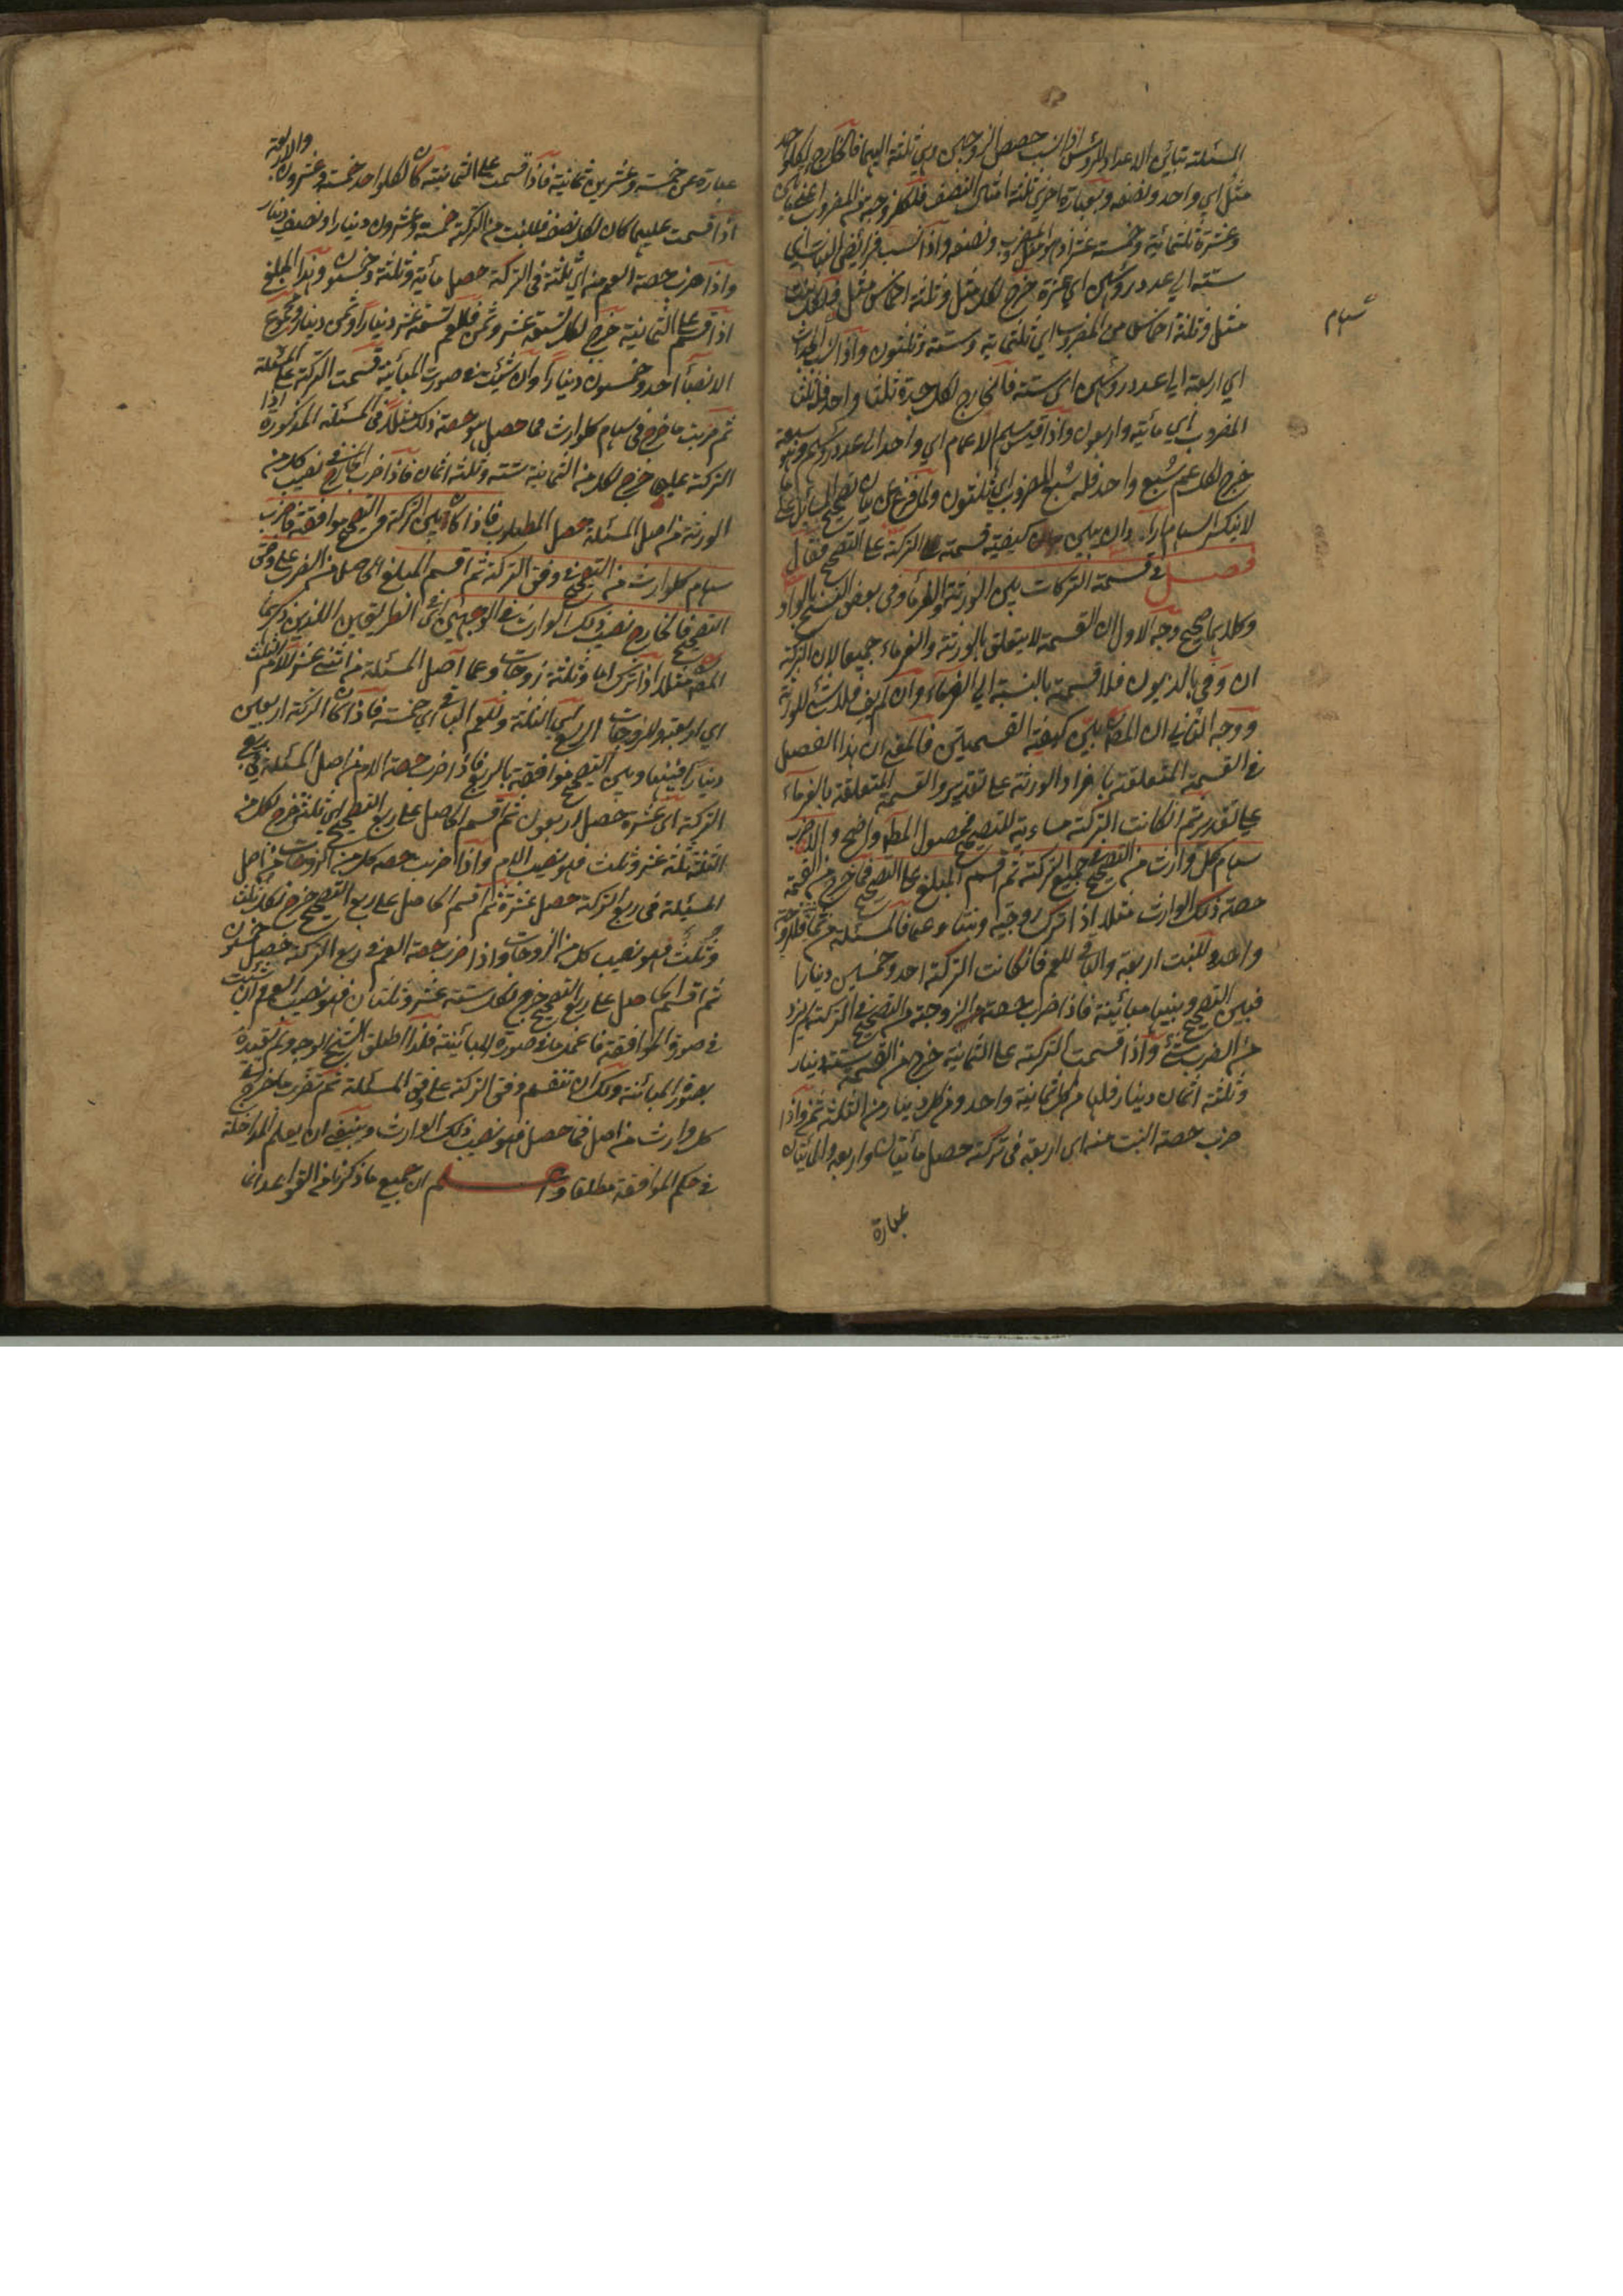 المسئلة تباين الاعداد الرؤس اذا نسب حصص الزوجين وهي ثلثة اليهما فالخارج لكل واحد
مثل اي واحد ونصفه وبعبارة اخرى ثلثة امثال النصف فلكل زوجة من المضروب اعني مأتين
وعشرة ثلثمائة وخمسة عشر اذ هو مثل المضروب ونصفه واذا نسب فرائض البنات اي
ستة الى عدد رؤسهن اي عشرة خرج لكل
مثل وثلثة اخماس من المضروب اي ثلثمائة وستة وثلثون واذا نسب الجدات
اي اربعة الى عدد رؤسهن اي ستة فالخارج لكل جدة ثلثا واحد فلها ثلثا
المضروب اي مائة واربعون واذا قيس سهم الاعمام اي واحد الى عدد رؤسهم وهو سبعة
خرج لكل عم سبع واحد فله سبع المضروب اي ثلثون ولما فرغ عن بيان تصحيح المسائل على
لا ينكسر السهام اراد ان يبين كيفية قسمة التركة على التصحيح فقال
فصل في قسمة التركات بين الورثة والغرماء وفي بعض النسخ بالواو
وكلاهما صحيح وجه الاول ان القسمة لا يتعلق بالورثة والغرماء جميعا لان التركة
ان وفي بالديون فلا قسمة بالنسبة الى الغرماء وان لم يف فلا شئ للورثة
ووجه الثاني ان المصنف يبين كيفية القسمتين فالمعنى ان هذا الفصل
في القسمة المتعلقة بافراد الورثة على تقدير والقسمة المتعلقة بالغرماء
على تقدير ثم ان كانت التركة مساوية للتصحيح فحصول المطلوب واضح والا فاضرب
سهام كل وارث من التصحيح في جميع التركة ثم اقسم المبلغ على التصحيح فما خرج من القسمة
حصة ذلك الوارث مثلا اذا ترك زوجة وبنتا وعما فالمسئلة من ثمانية فللزوجة
واحد وللبنت اربعة والباقي للعم فان كانت التركة احد وخمسين دينارا
فبين التصحيح وبينها مباينة فاذا ضرب حصة الزوجة من التصحيح في التركة لم يزد
من الضرب شئ واذا قسمت التركة على الثمانية خرج من القسمة ستة دينار
وثلثة اثمان دينار فلها من كل ثمانية واحد ومن كل دينار من الثلثة ثمن واذا
ضرب حصة البنت منه اي اربعة في تركة حصل مأتان واربعة والمأتان
عبارة
سهام
والاربعة
عبارة عن خمسة وعشرين ثمانية فاذا قسمت على الثمانية كان لكل واحد خمسة وعشرون
اذا قسمت عليها كان لكل نصف فللبنت من التركة خمسة وعشرون دينارا ونصف دينار
واذا ضرب حصة العم منه اي ثلثة في التركة حصل مأية وثلثة وخمسون وهذا المبلغ
اذا قسم على الثمانية خرج لكل تسعة عشر وثمن فللعم تسعة عشر دينارا وثمن دينار ومجموع
الانصباء احد وخمسون دينارا وان شئت في صورة المباينة قسمت التركة على المسئلة
ثم ضربت ما خرج في سهام كل وارث فما حصل هو حصة ذلك مثلا في المسئلة المذكورة اذا
التركة عليها خرج لكل من الثمانية ستة وثلثة اثمان فاذا ضرب الخارج في نصيب كل من
الورثة من اصل المسئلة حصل المطلوب فاذا كان بين التركة والتصحيح موافقة فاضرب
سهام كل وارث من التصحيح في وفق التركة ثم اقسم المبلغ الحاصل من الضرب على وفق
التصحيح فالخارج نصيب ذلك الوارث في الوجهين اي الطريقين اللذين ذكرهما
المصنف مثلا اذا ترك اما وثلثة زوجات وعما اصل المسئلة من اثني عشر للام الثلث
اي اربعة وللزوجات الربع اي الثلثة وللعم الباقي اي خمسة فاذا كان التركة اربعين
دينارا فبينها وبين التصحيح موافقة بالربع فاذا ضرب حصة الام من اصل المسئلة في ربع
التركة اي عشرة حصل اربعون ثم قسم الحاصل على ربع التصحيح اي ثلثة خرج لكل من
الثلثة ثلثة عشر وثلث فهو نصيب الام واذا ضرب حصة كل من الزوجات من اصل
المسئلة في ربع التركة حصل عشرة ثم اقسم الحاصل على ربع التصحيح خرج لكل ثلث
وثلث فهو نصيب كل من الزوجات واذا ضرب حصة العم في ربع التركة حصل خمسون
ثم اقسم الحاصل على ربع التصحيح خرج لكل ستة عشر وثلثان فهو نصيب العم وان شئت
في صورة الموافقة فاعمل ما في صورة المباينة فلذا اطلق الشيخ الوجه ولم يقيده
بصورة المباينة ولك ان تقسم وفق التركة على وفق المسئلة ثم تضرب ما خرج في
كل وارث من اصل فما حصل فهو نصيب ذلك الوارث وينبغي ان يعلم المداخلة
في حكم الموافقة مطلقا واعلم ان جميع ما ذكرنا من القواعد انما